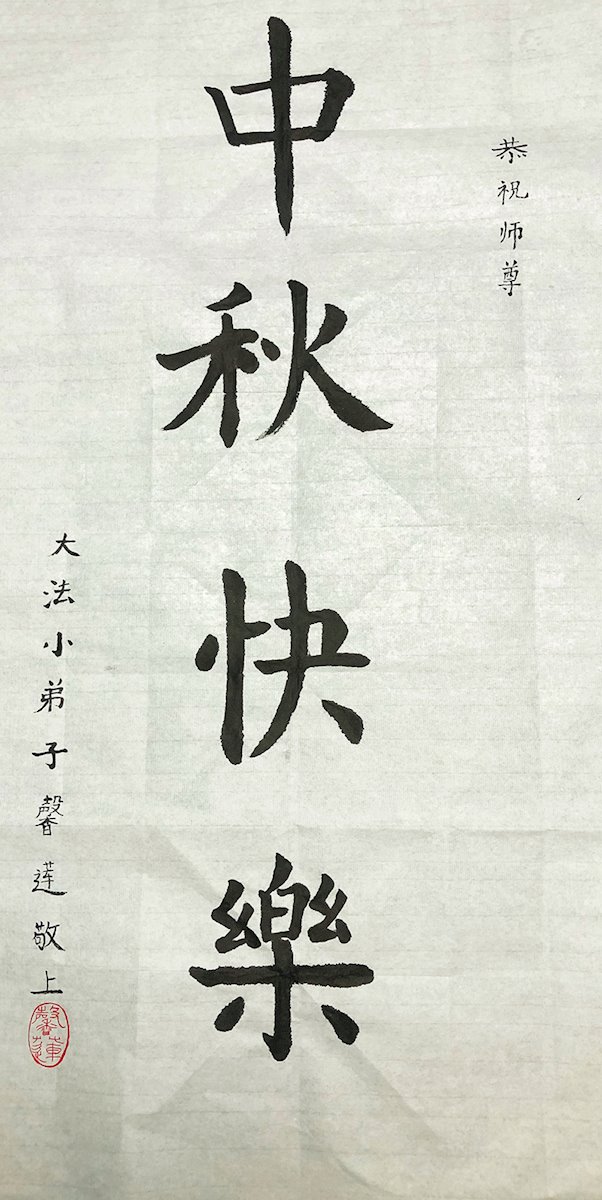 恭祝师尊
中秋快樂
大法小弟子馨莲敬上
馨蓮